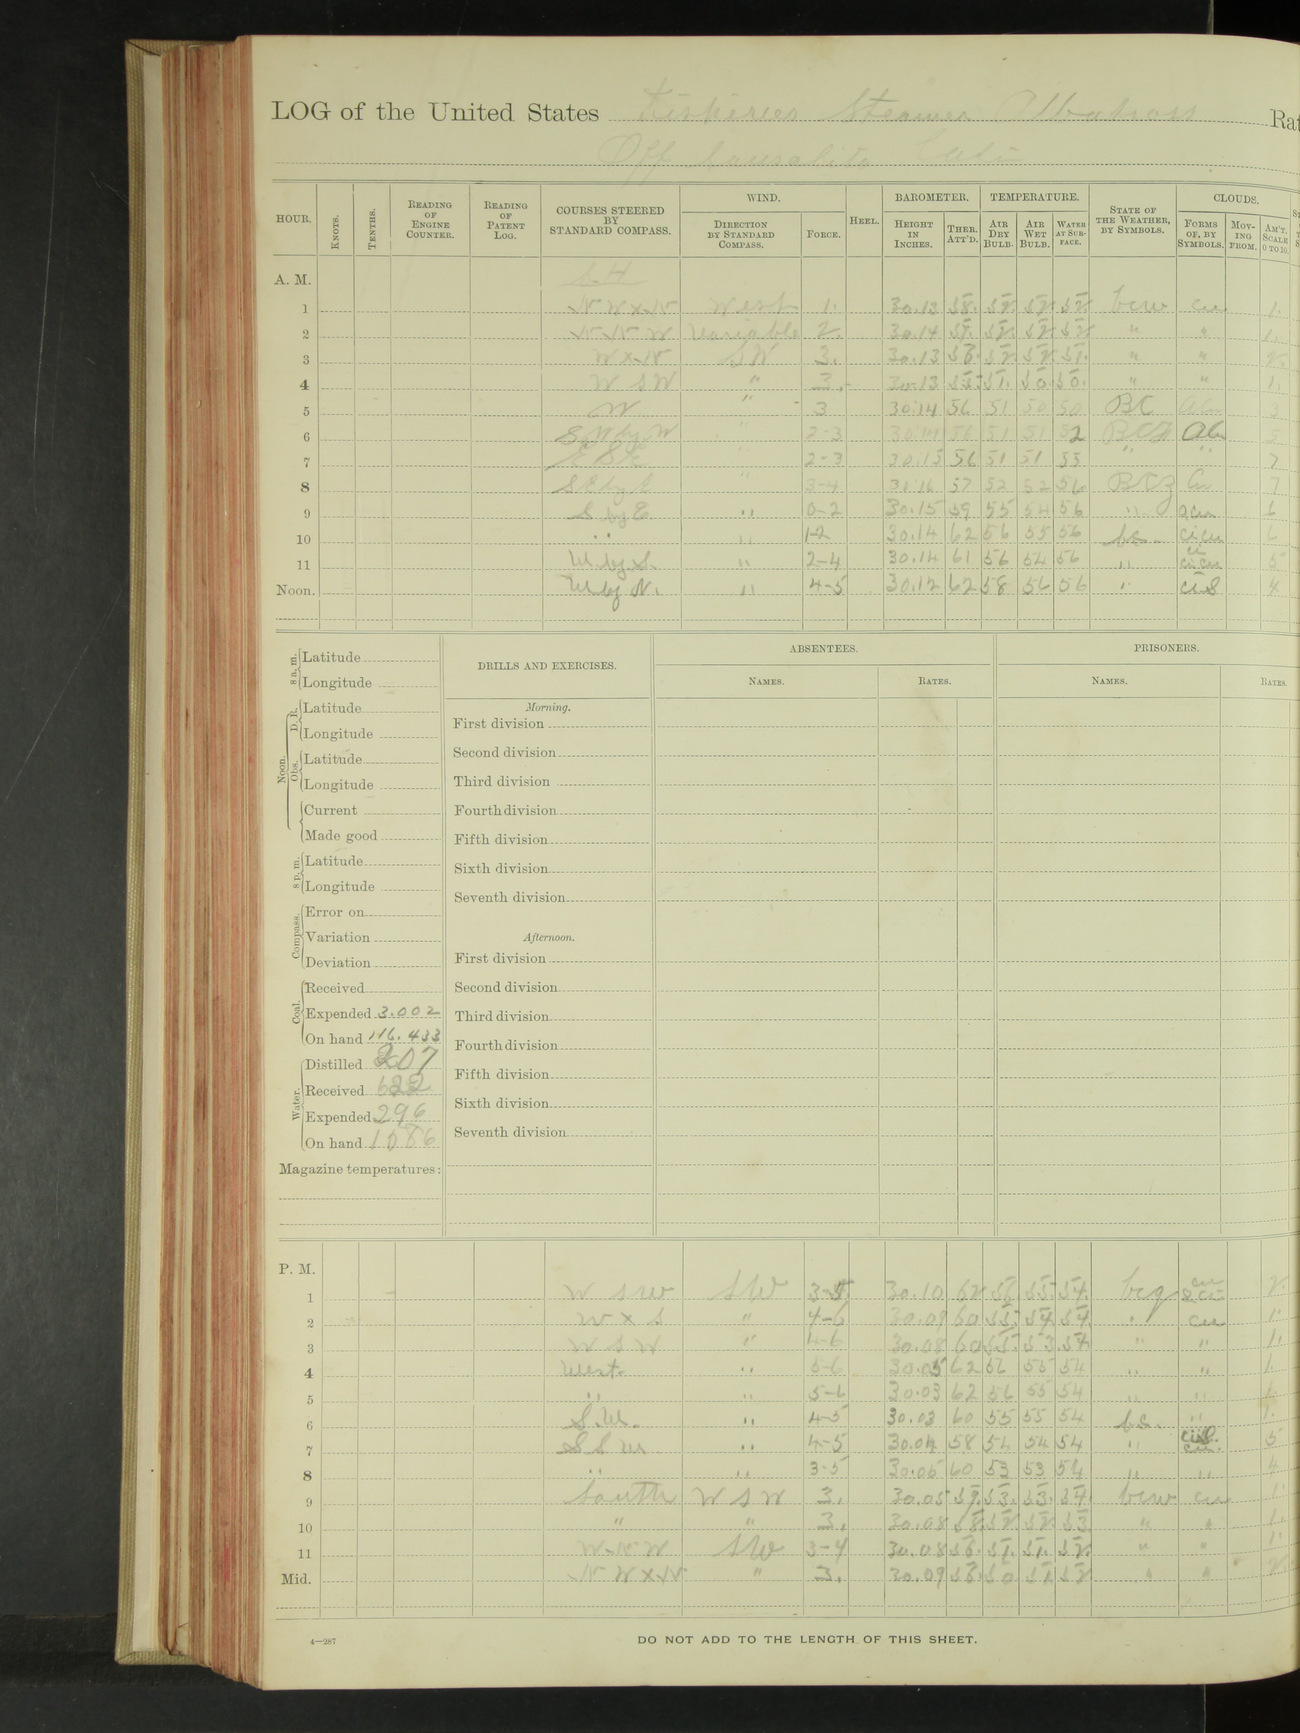 LOG of the United States Fisheries Steamer Albatross Rat
Off Sausalito Cali
HOUR. KNOTS. TENTHS. READING OF ENGINE COUNTER. READING OF PATENT LOG. COURSES STEERED BY STANDARD COMPASS. WIND. DIRECTION BY STANDARD COMPASS. FORCE. HEEL. BAROMETER. HEIGHT IN INCHES. THER. ATT'D. TEMPERATURE. AIR DRY BULB. AIR WET BULB. WATER AT SURFACE. STATE OF THE WEATHER, BY SYMBOLS. CLOUDS. FORMS OF, BY SYMBOLS. MOVING FROM. AM'T, SCALE 0 TO 10.
A. M.
1 NW x N West 1. 30.13 58. 52. 52. 52 bcw cu 1.
2 NNW Variable 2. 30.14 57. 52. 52 52 " " 1.
3 W x N SW 3. 30.13 56. 52. 52 51. " " 2.
4 WSW " 3. 30.13 55. 51. 50. 50. " " 1.
5 W " 3 30.14 56 51 50 50 BC 3
6 SW by W " 2-3 30.14 56 51 51 52
7 ESE " 2-3 30.15 56 51 51 55 " " 7
8 SE by E " 3-4 30.16 57 52 52 56 BCZ Cu 7
9 S by E " 0-2 30.15 59 55 54 56 " 6
10 " " 1-2 30.14 62 56 55 56 b.c. ci cu 6
11 W. by S. " 2-4 30.14 61 56 54 56 " ci ci cu 5
Noon. W by N. " 4-5 30.12 62 58 56 56 " ci S 4
8 a. m. Latitude
Longitude
Noon. D. R. Latitude
Longitude
Obs. Latitude
Longitude
Current
Made good
8 p. m. Latitude
Longitude
Compass. Error on
Variation
Deviation
Coal. Received
Expended 3.002
On hand 116.433
Water. Distilled 207
Received 622
Expended 296
On hand 1586
Magazine temperatures:
DRILLS AND EXERCISES.
Morning.
First division
Second division
Third division
Fourth division
Fifth division
Sixth division
Seventh division
Afternoon.
First division
Second division
Third division
Fourth division
Fifth division
Sixth division
Seventh division
ABSENTEES.
NAMES. RATES.
PRISONERS.
NAMES. RATES.
P. M.
1 WSW SW 3-5 30.10 62 56 55. 54. bcq cu 2.
2 W x S " 4-6 30.09 60 55. 54. 54. " cu 1.
3 WSW " 4-6 30.08 60 55. 53. 54. " " 1.
4 West. " 5-6 30.05 62 56 55 54 " " 1.
5 " " 5-6 30.03 62 56 55 54 " " 1.
6 S.W. " 4-5 30.03 60 55 55 54 b.c. " 1.
7 SSW " 4-5 30.04 58 54 54 54 " ci S. cu. 5
8 " " 3-5 30.05 60 53 53 54 " " 4
9 South WSW 3. 30.05 59. 53. 53. 54. bcw cu 1.
10 " " 3. 30.08 58. 52 52. 53 " " 1.
11 WNW SW 3-4 30.08 56. 51. 51. 52. " " 1.
Mid. NW x W " 3. 30.09 56. 50 51 52 " " 2.
4—287
DO NOT ADD TO THE LENGTH OF THIS SHEET.